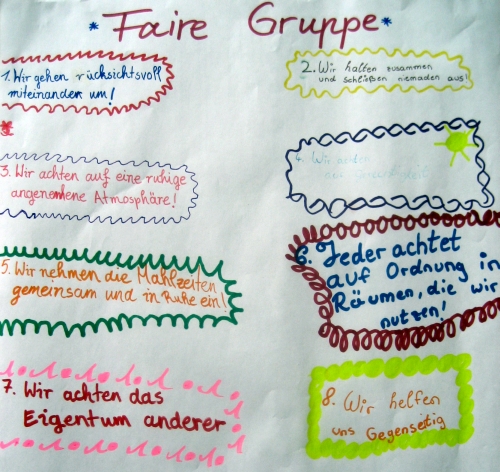 * Faire Gruppe *
1. Wir gehen rücksichtsvoll
miteinander um!
2. Wir halten zusammen
und schließen niemanden aus!
3. Wir achten auf eine ruhige
angenehme Atmosphäre!
4. Wir achten
5. Wir nehmen die Mahlzeiten
gemeinsam und in Ruhe ein!
6. Jeder achtet
auf Ordnung in
Räumen, die wir
nutzen!
7. Wir achten das
Eigentum anderer
8. Wir helfen
uns Gegenseitig